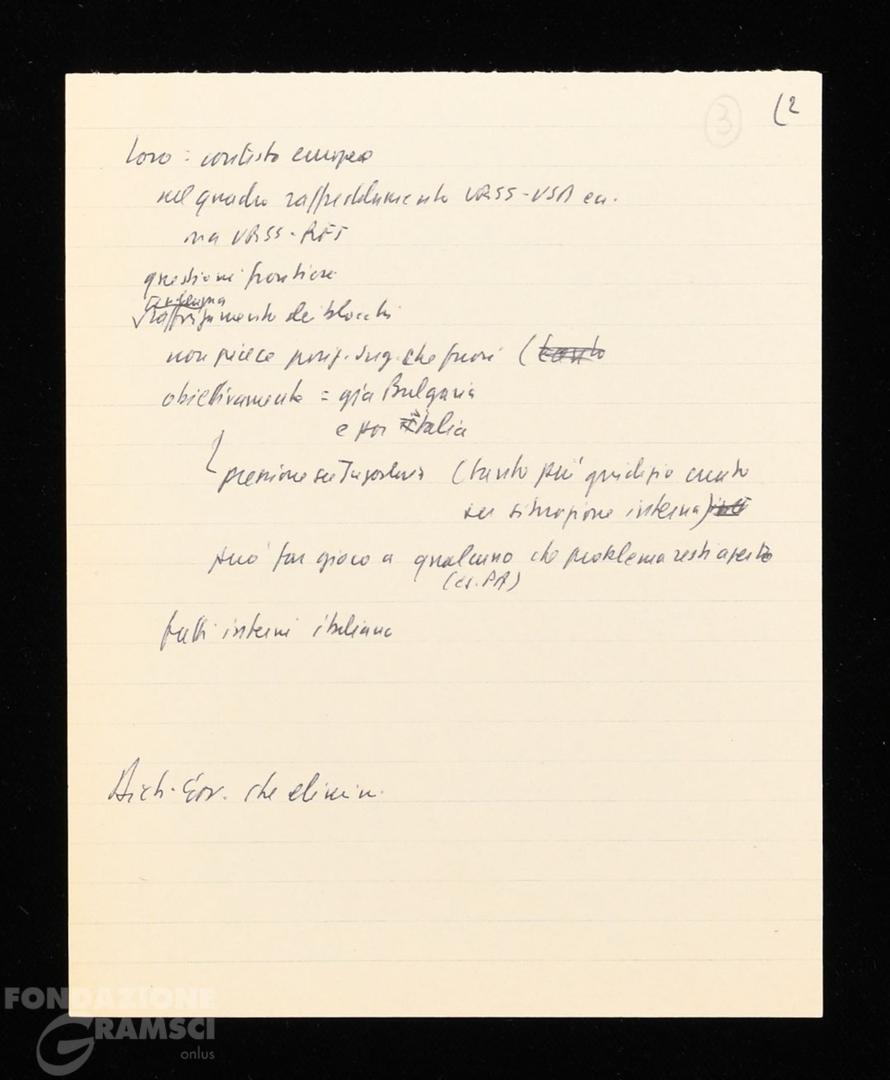 (2
3
Loro = contesto europeo
nel quadro raffreddamento URSS-USA ea.
ma URSS-RFT
questioni frontiere
dei blocchi
non piace posiz. Jug. che fuori (tanto
obiettivamente = già Bulgaria
e poi Italia
pressione su Jugoslavia (tanto più giudizio
su situazione interna)
può far gioco a qualcuno che problema resti aperto
(es. PA)
fatti interni italiani
Dich. Gov. che elimin.
FONDAZIONE
GRAMSCI
onlus